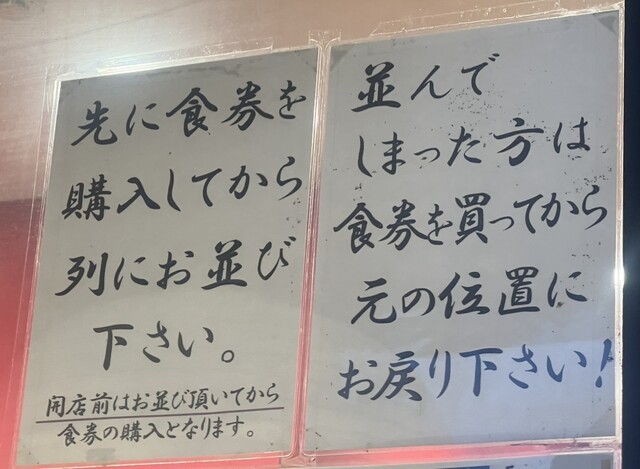 先に食券を
購入してから
列にお並び
下さい。
開店前はお並び頂いてから
食券の購入となります。
並んで
しまった方は
食券を買ってから
元の位置に
お戻り下さい!